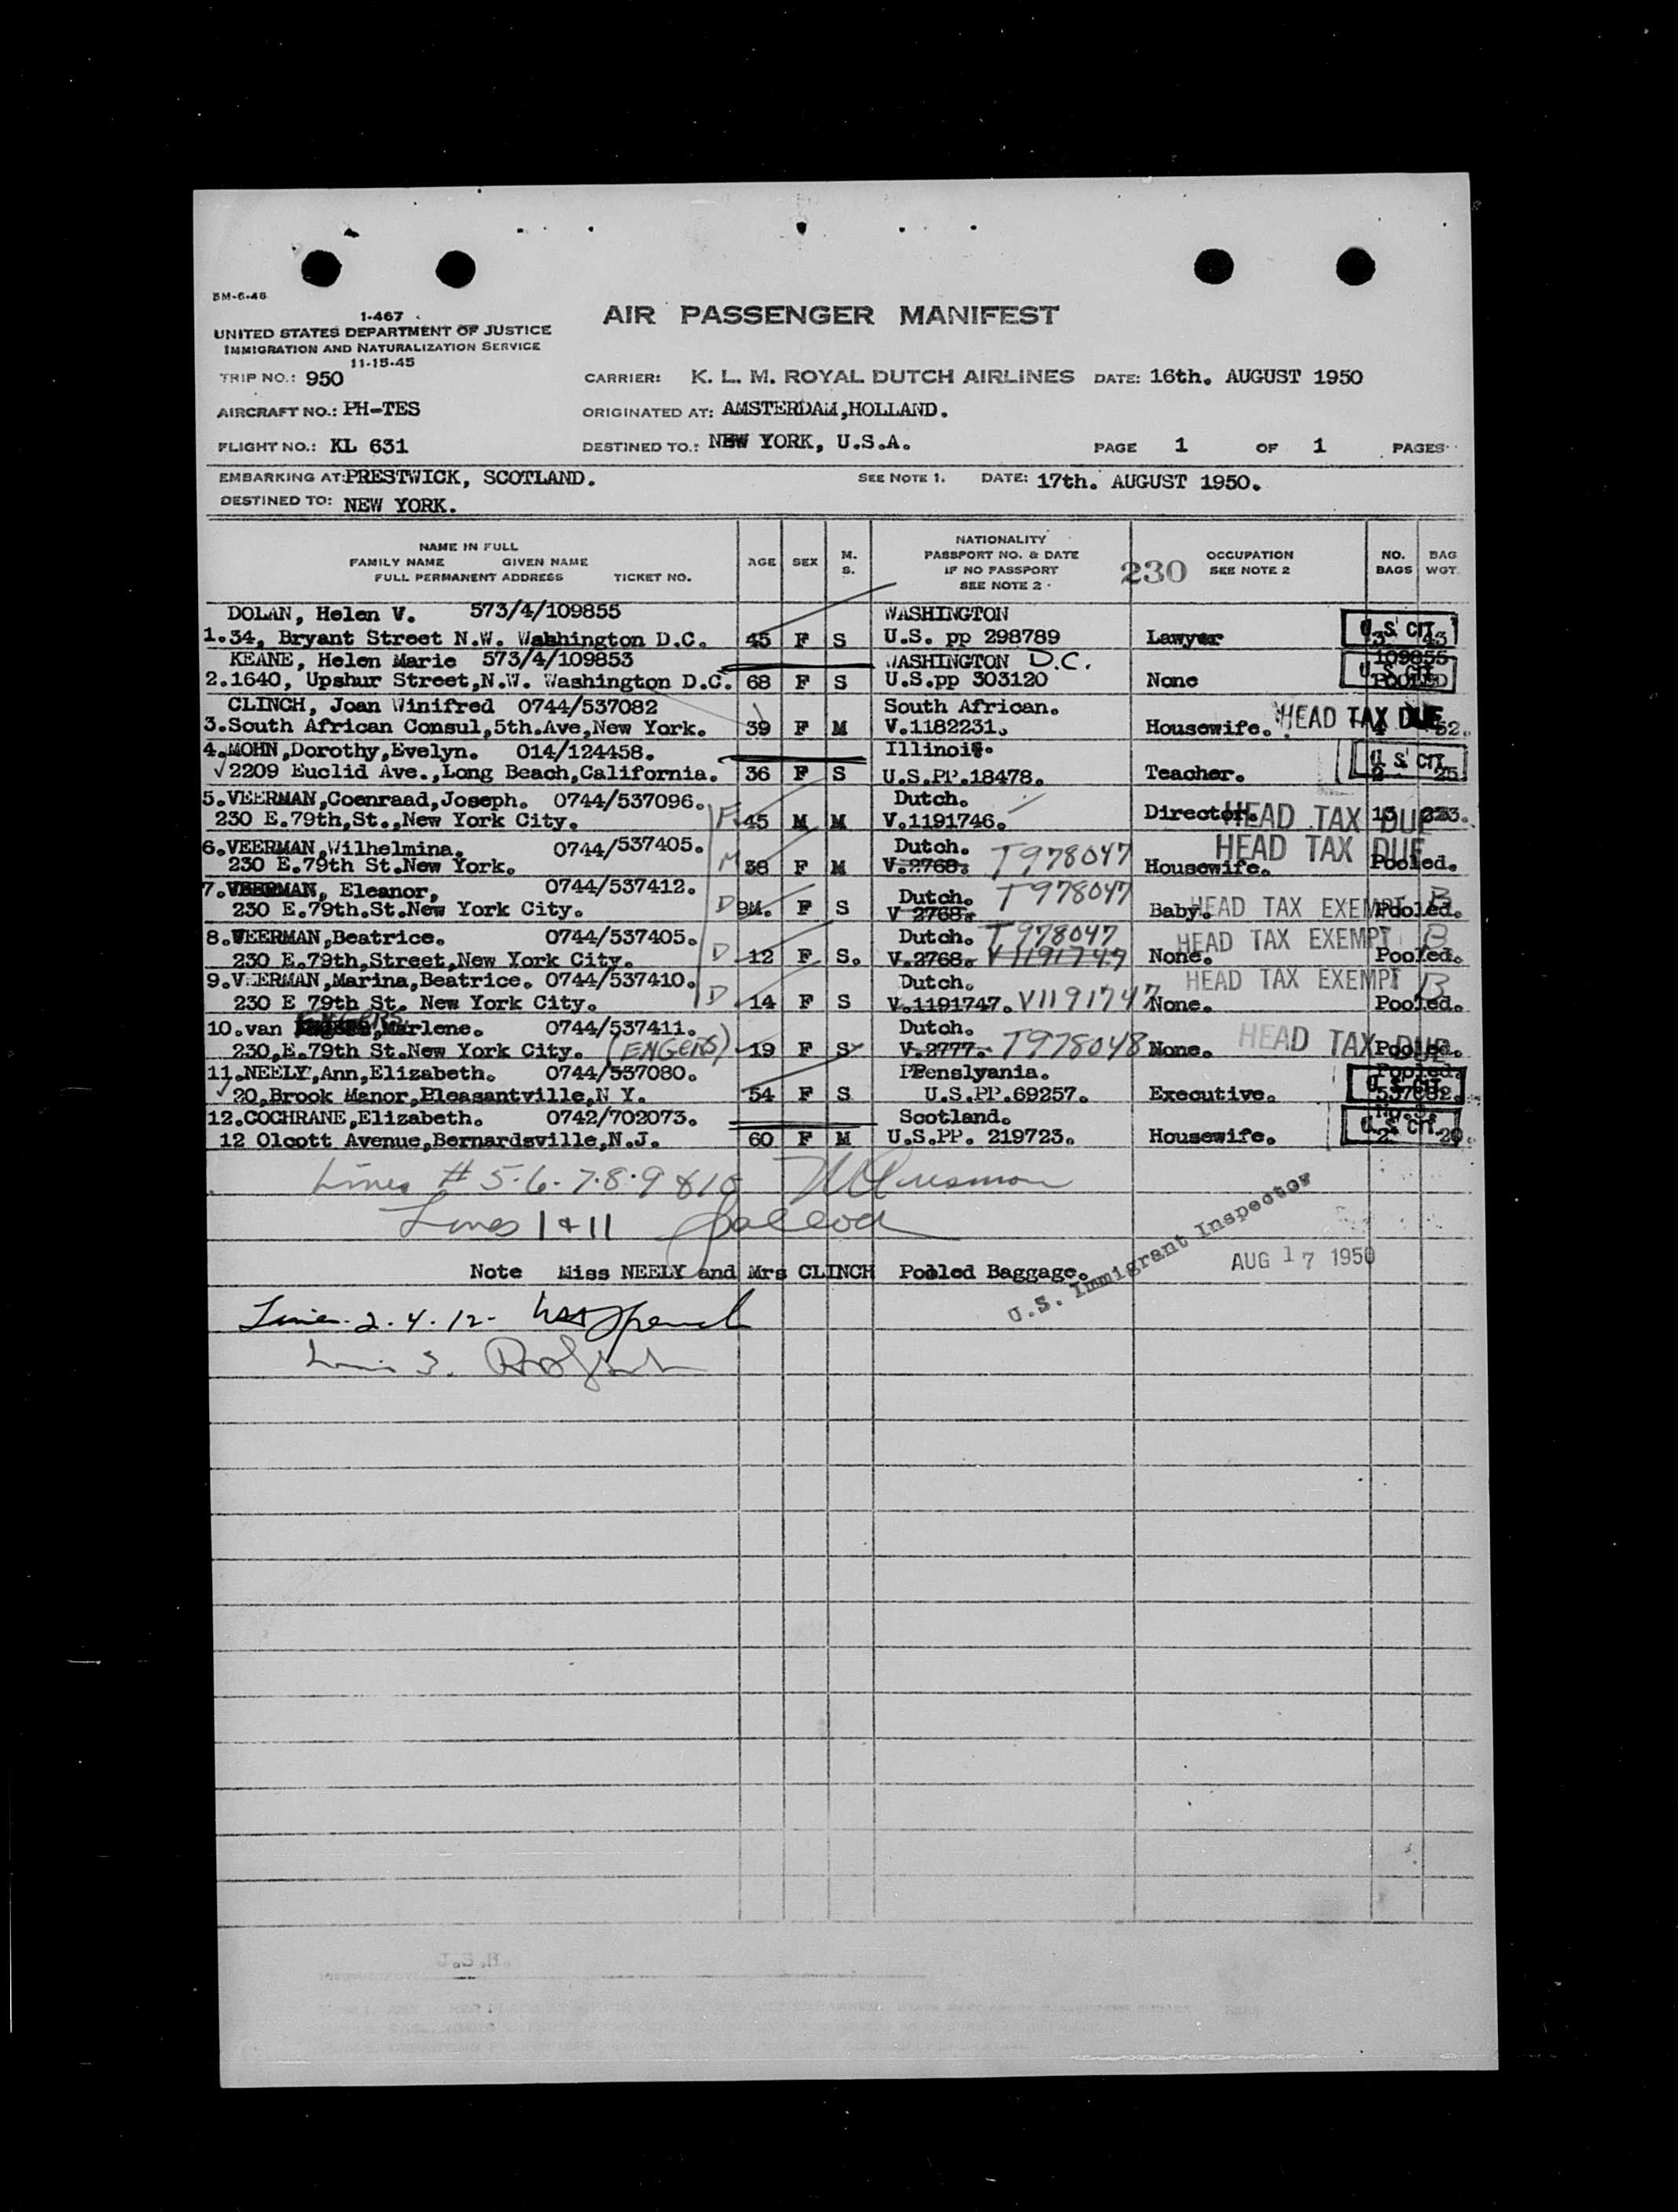 5M-6-46
1-467
UNITED STATES DEPARTMENT OF JUSTICE
IMMIGRATION AND NATURALIZATION SERVICE
11-15-45
AIR PASSENGER MANIFEST
TRIP NO.: 950 CARRIER: K. L. M. ROYAL DUTCH AIRLINES DATE: 16th. AUGUST 1950
AIRCRAFT NO.: PH-TES ORIGINATED AT: AMSTERDAM,HOLLAND.
FLIGHT NO.: KL 631 DESTINED TO.: NEW YORK, U.S.A. PAGE 1 OF 1 PAGES
EMBARKING AT: PRESTWICK, SCOTLAND. SEE NOTE 1. DATE: 17th. AUGUST 1950.
DESTINED TO: NEW YORK.
NAME IN FULL
FAMILY NAME GIVEN NAME
FULL PERMANENT ADDRESS TICKET NO.
AGE SEX M. S.
NATIONALITY
PASSPORT NO. & DATE
IF NO PASSPORT
SEE NOTE 2
230
OCCUPATION
SEE NOTE 2
NO. BAGS
BAG WGT.
DOLAN, Helen V. 573/4/109855 WASHINGTON
1.34, Bryant Street N.W. Washington D.C. 45 F S U.S. pp 298789 Lawyer U.S. CIT. 3 43
KEANE, Helen Marie 573/4/109853 WASHINGTON D.C. 109855
2.1640, Upshur Street,N.W. Washington D.C. 68 F S U.S.pp 303120 None U.S. CIT. POOLED
CLINCH, Joan Winifred 0744/537082 South African.
3.South African Consul,5th.Ave,New York. 39 F M V.1182231. Housewife. HEAD TAX DUE 4 52.
4.MOHN,Dorothy,Evelyn. 014/124458. Illinois.
✓2209 Euclid Ave.,Long Beach,California. 36 F S U.S.PP.18478. Teacher. U.S. CIT. 2 25
5.VEERMAN,Coenraad,Joseph. 0744/537096. Dutch.
230 E.79th,St.,New York City. F 45 M M V.1191746. Director. HEAD TAX DUE 13 223.
6.VEERMAN,Wilhelmina. 0744/537405. Dutch. T978047
230 E.79th St.New York. M 38 F M V.2768. Housewife. HEAD TAX DUE Pooled.
7.VEERMAN, Eleanor, 0744/537412. Dutch. T978047
230 E.79th.St.New York City. D 9M. F S V 2768. Baby. HEAD TAX EXEMPT B Pooled.
8.VEERMAN,Beatrice. 0744/537405. Dutch. T978047
230 E.79th,Street,New York City. D 12 F S. V.2768. V1191747 None. HEAD TAX EXEMPT B Pooled.
9.VEERMAN,Marina,Beatrice. 0744/537410. Dutch.
230 E 79th St. New York City. D 14 F S V.1191747. V1191747 None. HEAD TAX EXEMPT B Pooled.
10.van ENGERS,Marlene. 0744/537411. Dutch.
230,E.79th St.New York City. (ENGERS) 19 F S V.2777. T978048 None. HEAD TAX DUE Pooled.
11.NEELY,Ann,Elizabeth. 0744/537080. PPenslyania. Pooled.
✓20,Brook Manor,Pleasantville,N Y. 54 F S U.S.PP.69257. Executive. U.S. CIT. 537082.
12.COCHRANE,Elizabeth. 0742/702073. Scotland. No.3.
12 Olcott Avenue,Bernardsville,N.J. 60 F M U.S.PP. 219723. Housewife. U.S. CIT. 2 20.
Lines # 5-6-7-8-9 & 10
Lines 1 + 11
U.S. Immigrant Inspector
AUG 17 1950
Note Miss NEELY and Mrs CLINCH Pooled Baggage.
Lines 2-4-12-
Line 3.